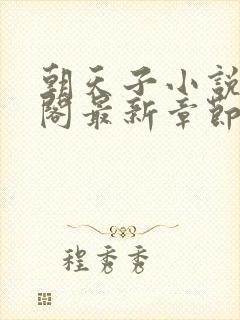 朝天子小說
閣最新章節
程秀秀